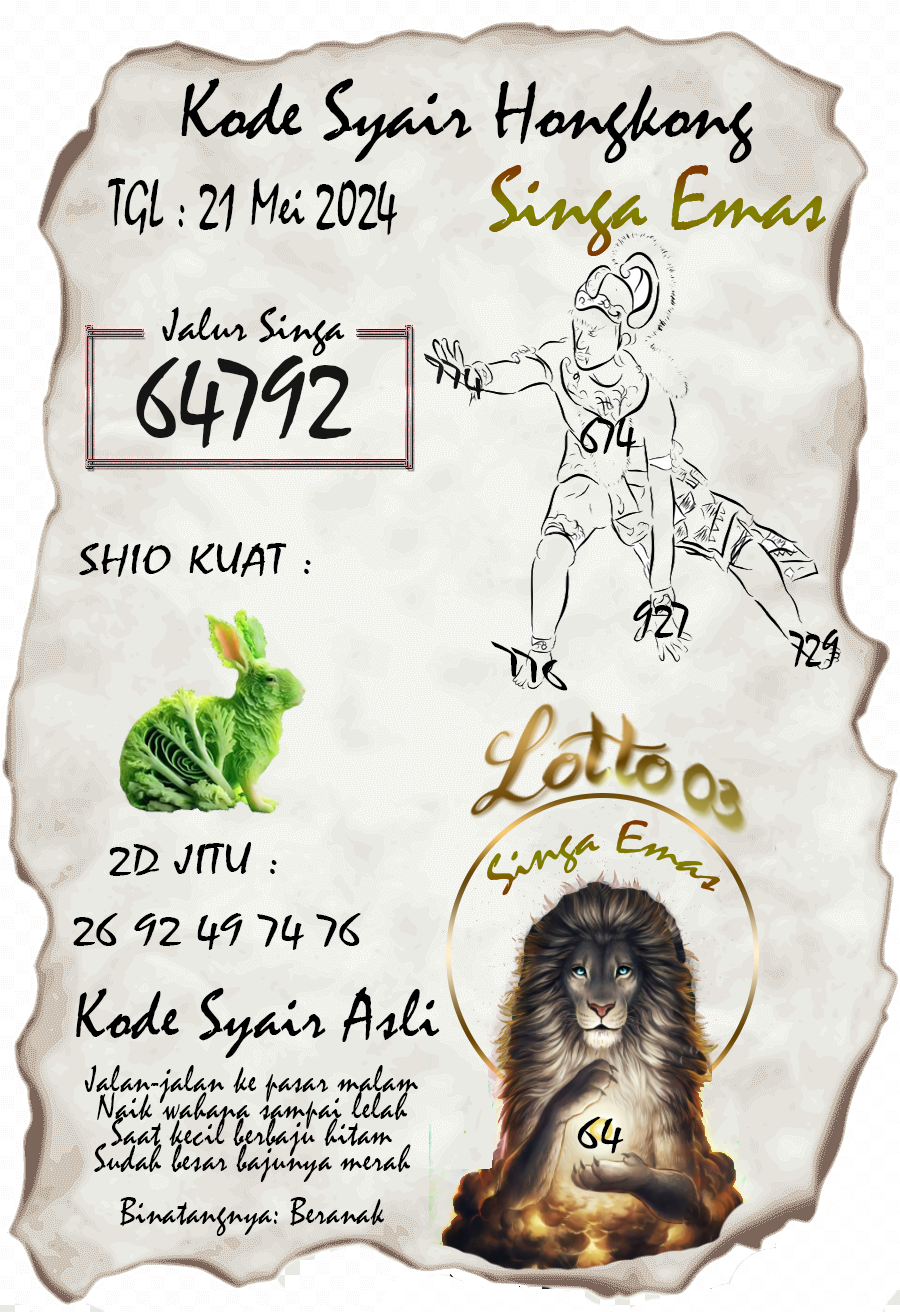 Kode Syair Hongkong
TGL : 21 Mei 2024
Singa Emas
Jalur Singa
64792
774
674
927
776
729
SHIO KUAT :
Lotto 03
Singa Emas
64
2D JITU :
26 92 49 74 76
Kode Syair Asli
Jalan-jalan ke pasar malam
Naik wahana sampai lelah
Saat kecil berbaju hitam
Sudah besar bajunya merah
Binatangnya: Beranak